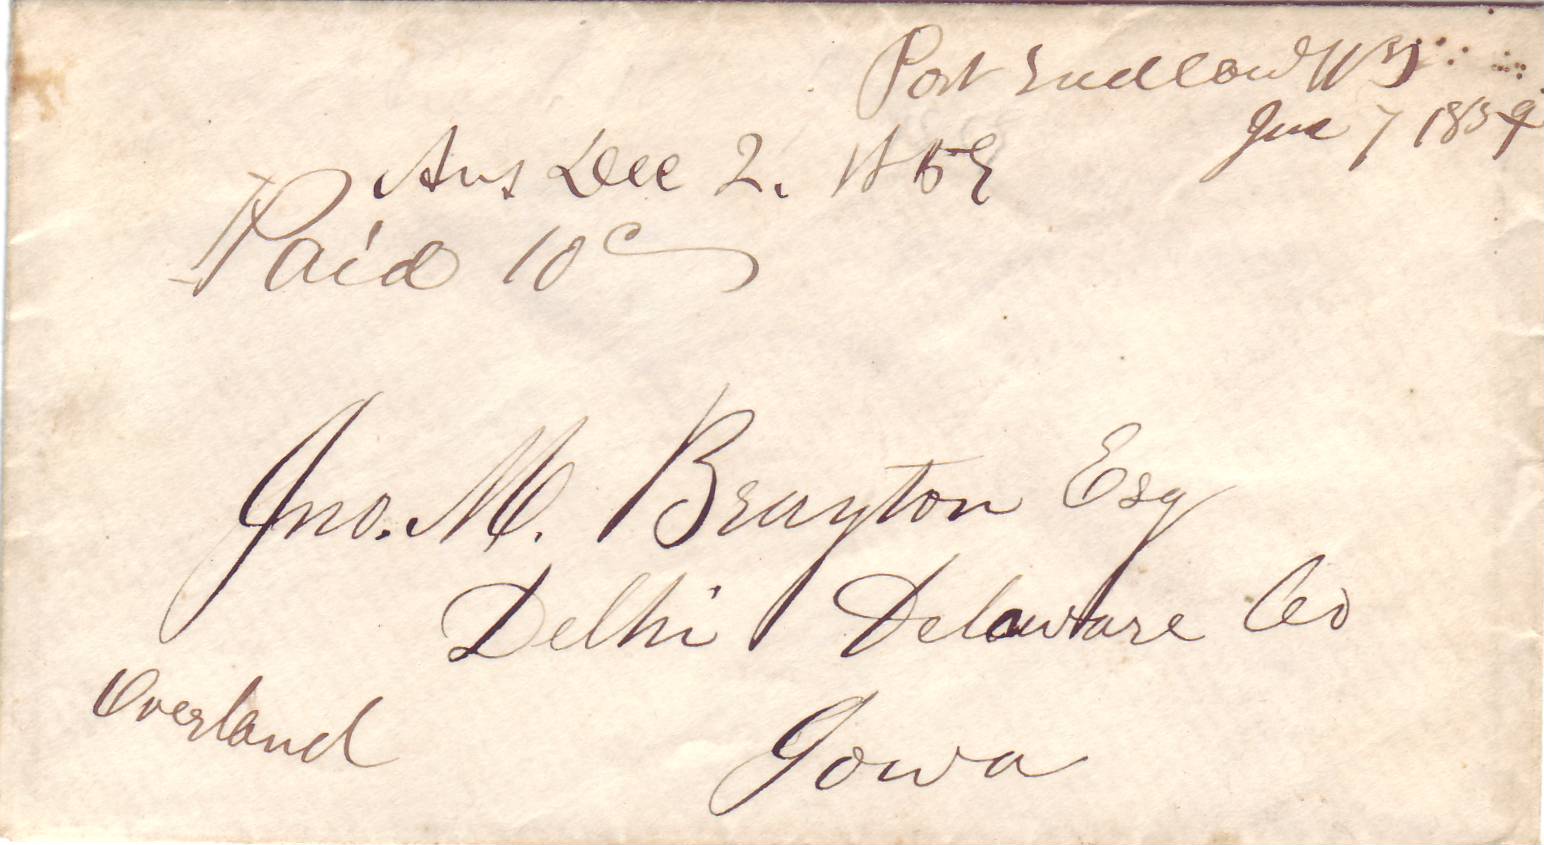 Port Ludlow W T
Jan 7 1859
Ans Dec 2. 1859
Paid 10c
Jno. M. Brayton Esq
Delhi Delaware Co
Overland
Iowa